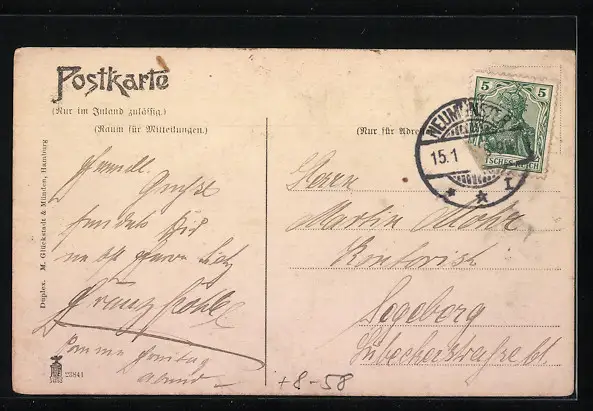 Postkarte
(Nur im Inland zulässig.)
(Raum für Mitteilungen.)
(Nur für Adre
5 5
DEUTSCHES REICH
NEUMÜNSTER
15.1
* * I
Freundl. Grüße
sendet Dir
Franz
Freitag
Abend
Herrn
Martin Mohr
Kontorist
Segeberg
Lübeckerstraße 61
Duplex. M. Glückstadt & Münden, Hamburg
22841
+8-58